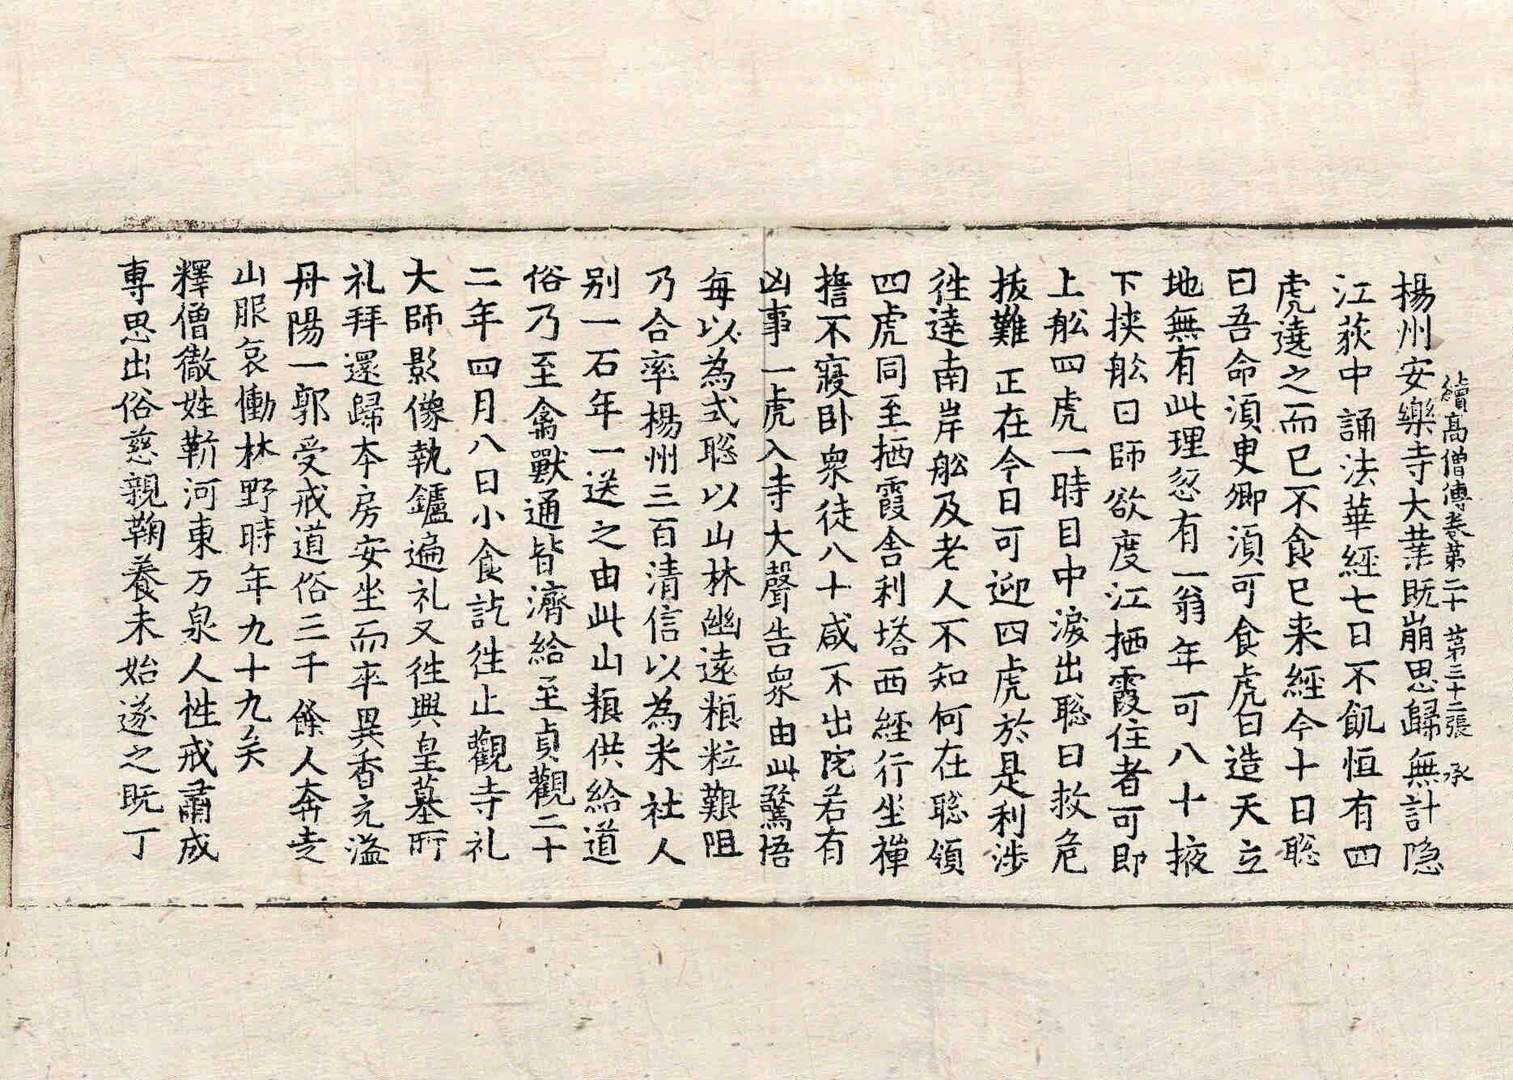 續高僧傳卷第二十 第三十二張 承
楊州安樂寺大業既崩思歸無計隱
江荻中誦法華經七日不飢恒有四
虎遶之而已不食已来經今十日聡
曰吾命湏臾卿湏可食虎曰造天立
地無有此理忽有一翁年可八十掖
下挟舩曰師欲度江栖霞住者可即
上舩四虎一時目中淚出聡曰救危
拔難正在今日可迎四虎於是利涉
往達南岸舩及老人不知何在聡領
四虎同至栖霞舍利塔西經行坐禪
擔不寢卧衆徒八十咸不出院若有
凶事一虎入寺大聲告衆由此驚悟
每以為式聡以山林幽遠粮粒艱阻
乃合率楊州三百清信以為米社人
别一石年一送之由此山粮供給道
俗乃至禽獸通皆濟給至貞觀二十
二年四月八日小食訖往止觀寺礼
大師影像執鑪遍礼又往興皇墓所
礼拜還歸本房安坐而卒異香充溢
丹陽一郭受戒道俗三千餘人奔走
山服哀慟林野時年九十九矣
釋僧徹姓靳河東万泉人性戒肅成
專思出俗慈親鞠養未始遂之既丁